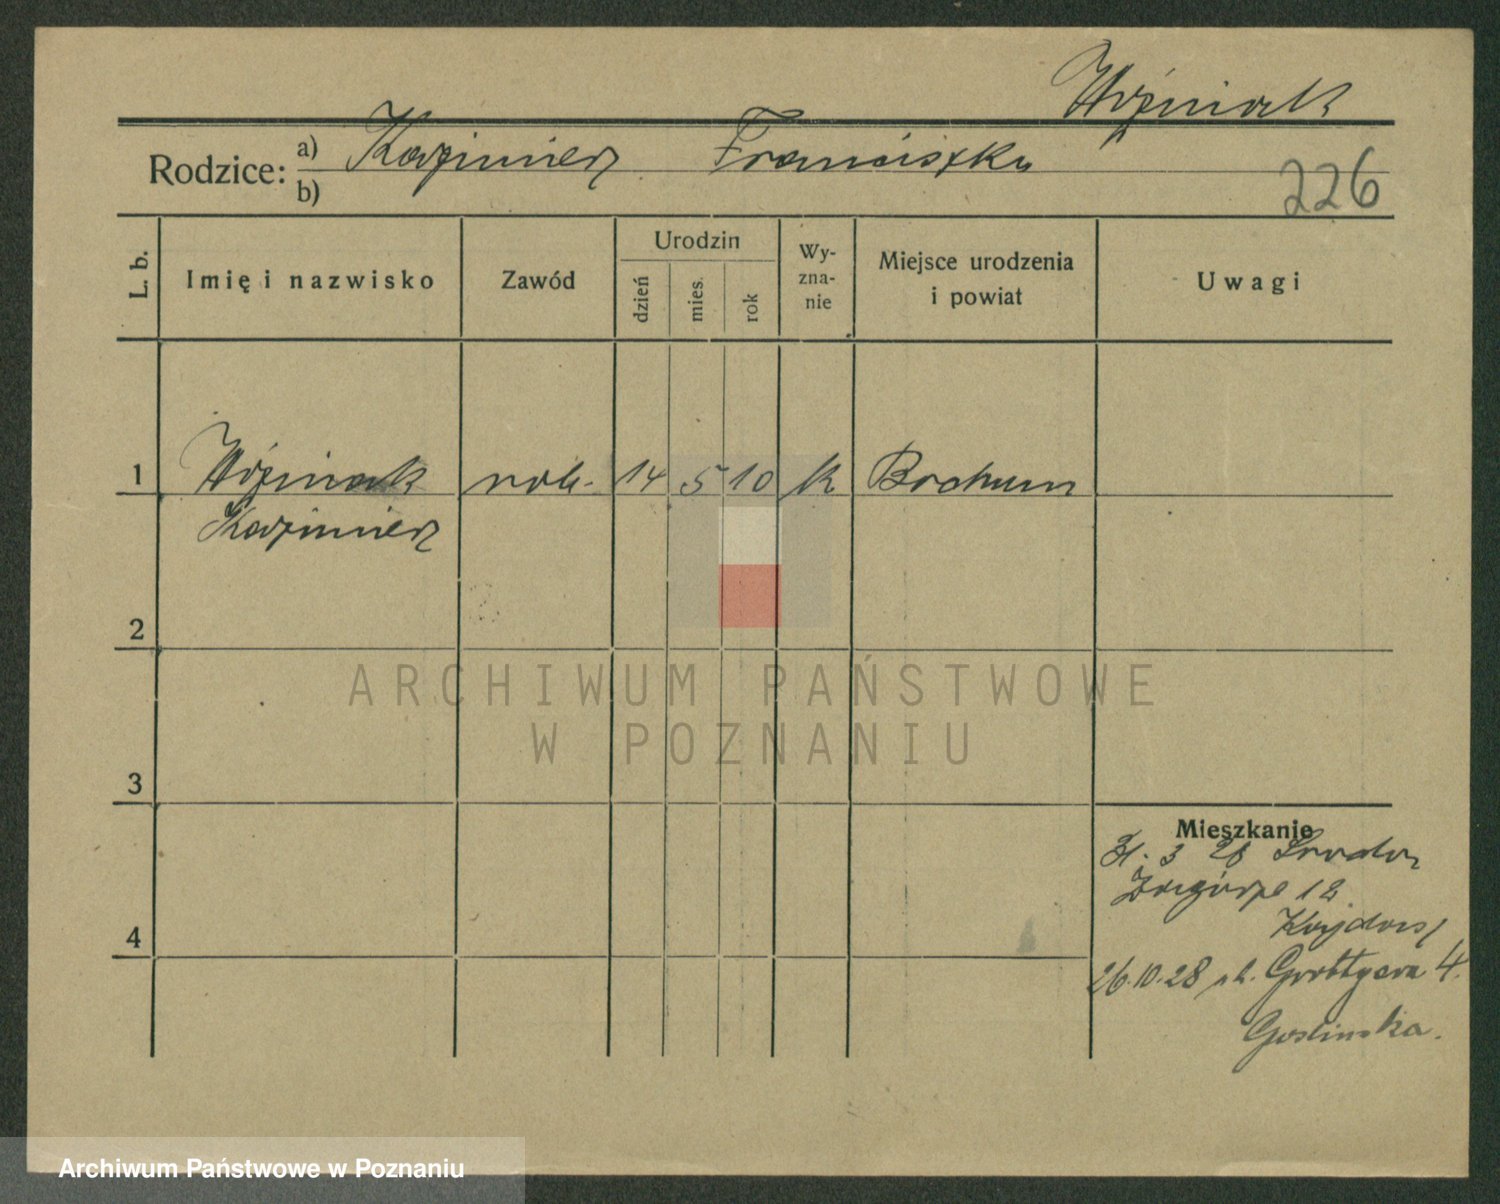 Woźniak
Rodzice: a) Kazimierz Franciszka
b)
226
L. b.
Imię i nazwisko
Zawód
Urodzin
dzień
mies.
rok
Wy-
zna-
nie
Miejsce urodzenia
i powiat
Uwagi
1 Woźniak rob. 14 5 10 k Bochum
Kazimierz
2
3
4
Mieszkanie
31. 3 28 Środa
Zagórze 12
26.10.28 Grottgera 4.
Goslinska.
ARCHIWUM PAŃSTWOWE
W POZNANIU
Archiwum Państwowe w Poznaniu